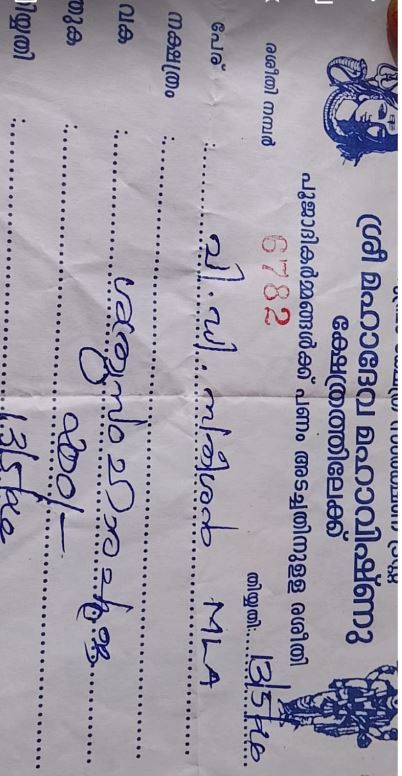 ശ്രീ മഹാദേവ മഹാവിഷ്ണു
ക്ഷേത്രത്തിലേക്ക്
പൂജാദികർമ്മങ്ങൾക്ക് പണം അടച്ചതിനുള്ള രശീതി
രശീതി നമ്പർ 6782 തിയ്യതി: 13/5/26
പേര് : വി. ഡി. സതീശൻ MLA
നക്ഷത്രം :
വക : ശത്രുസംഹാര പൂജ
തുക :
തിയ്യതി : 13/5/26